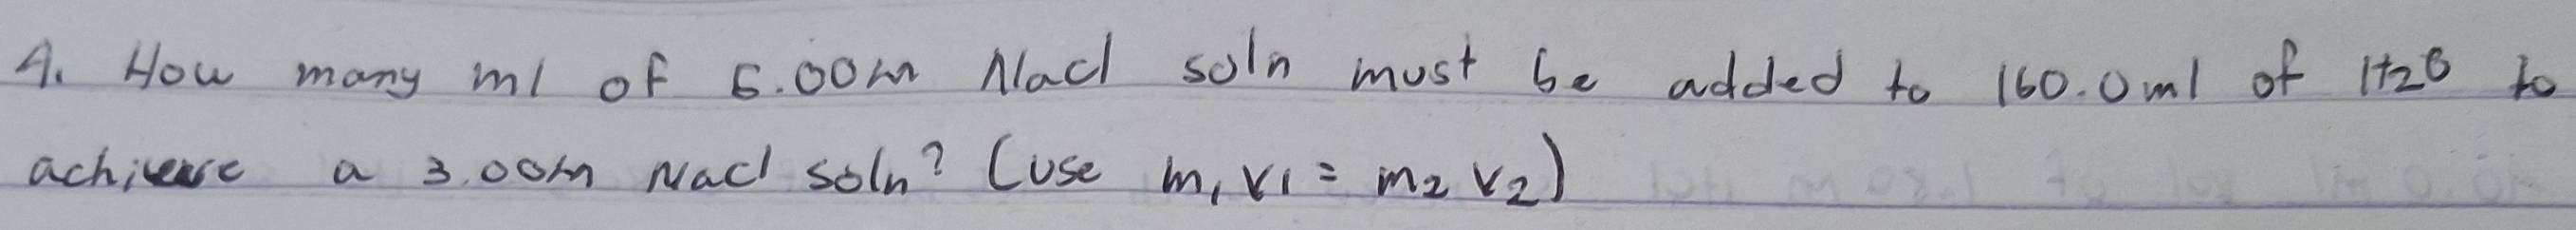 4. How many ml of 5.00m Nacl soln must be added to 160.0ml of H20 to
achieve a 3.00m Nacl soln? (use m1 v1 = m2 v2)